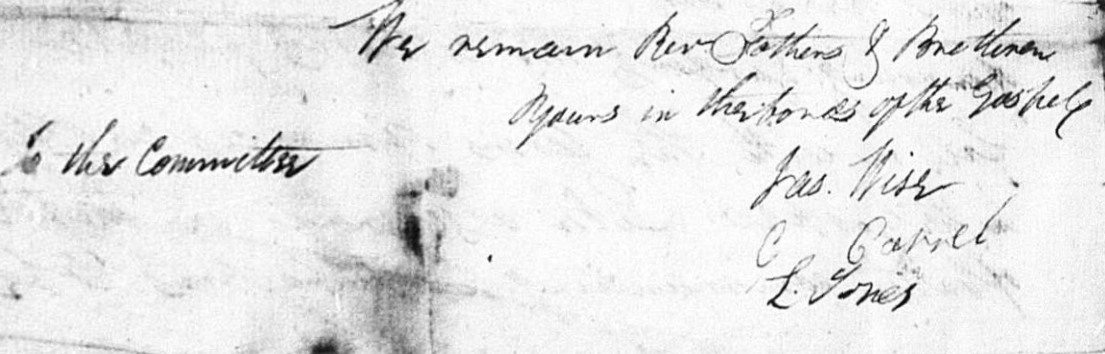 We remain Rev Fathers & Brethren
Yours in the bonds of the Gospel
To the Committee
Jas. Wise
C Carrel
L. Jones